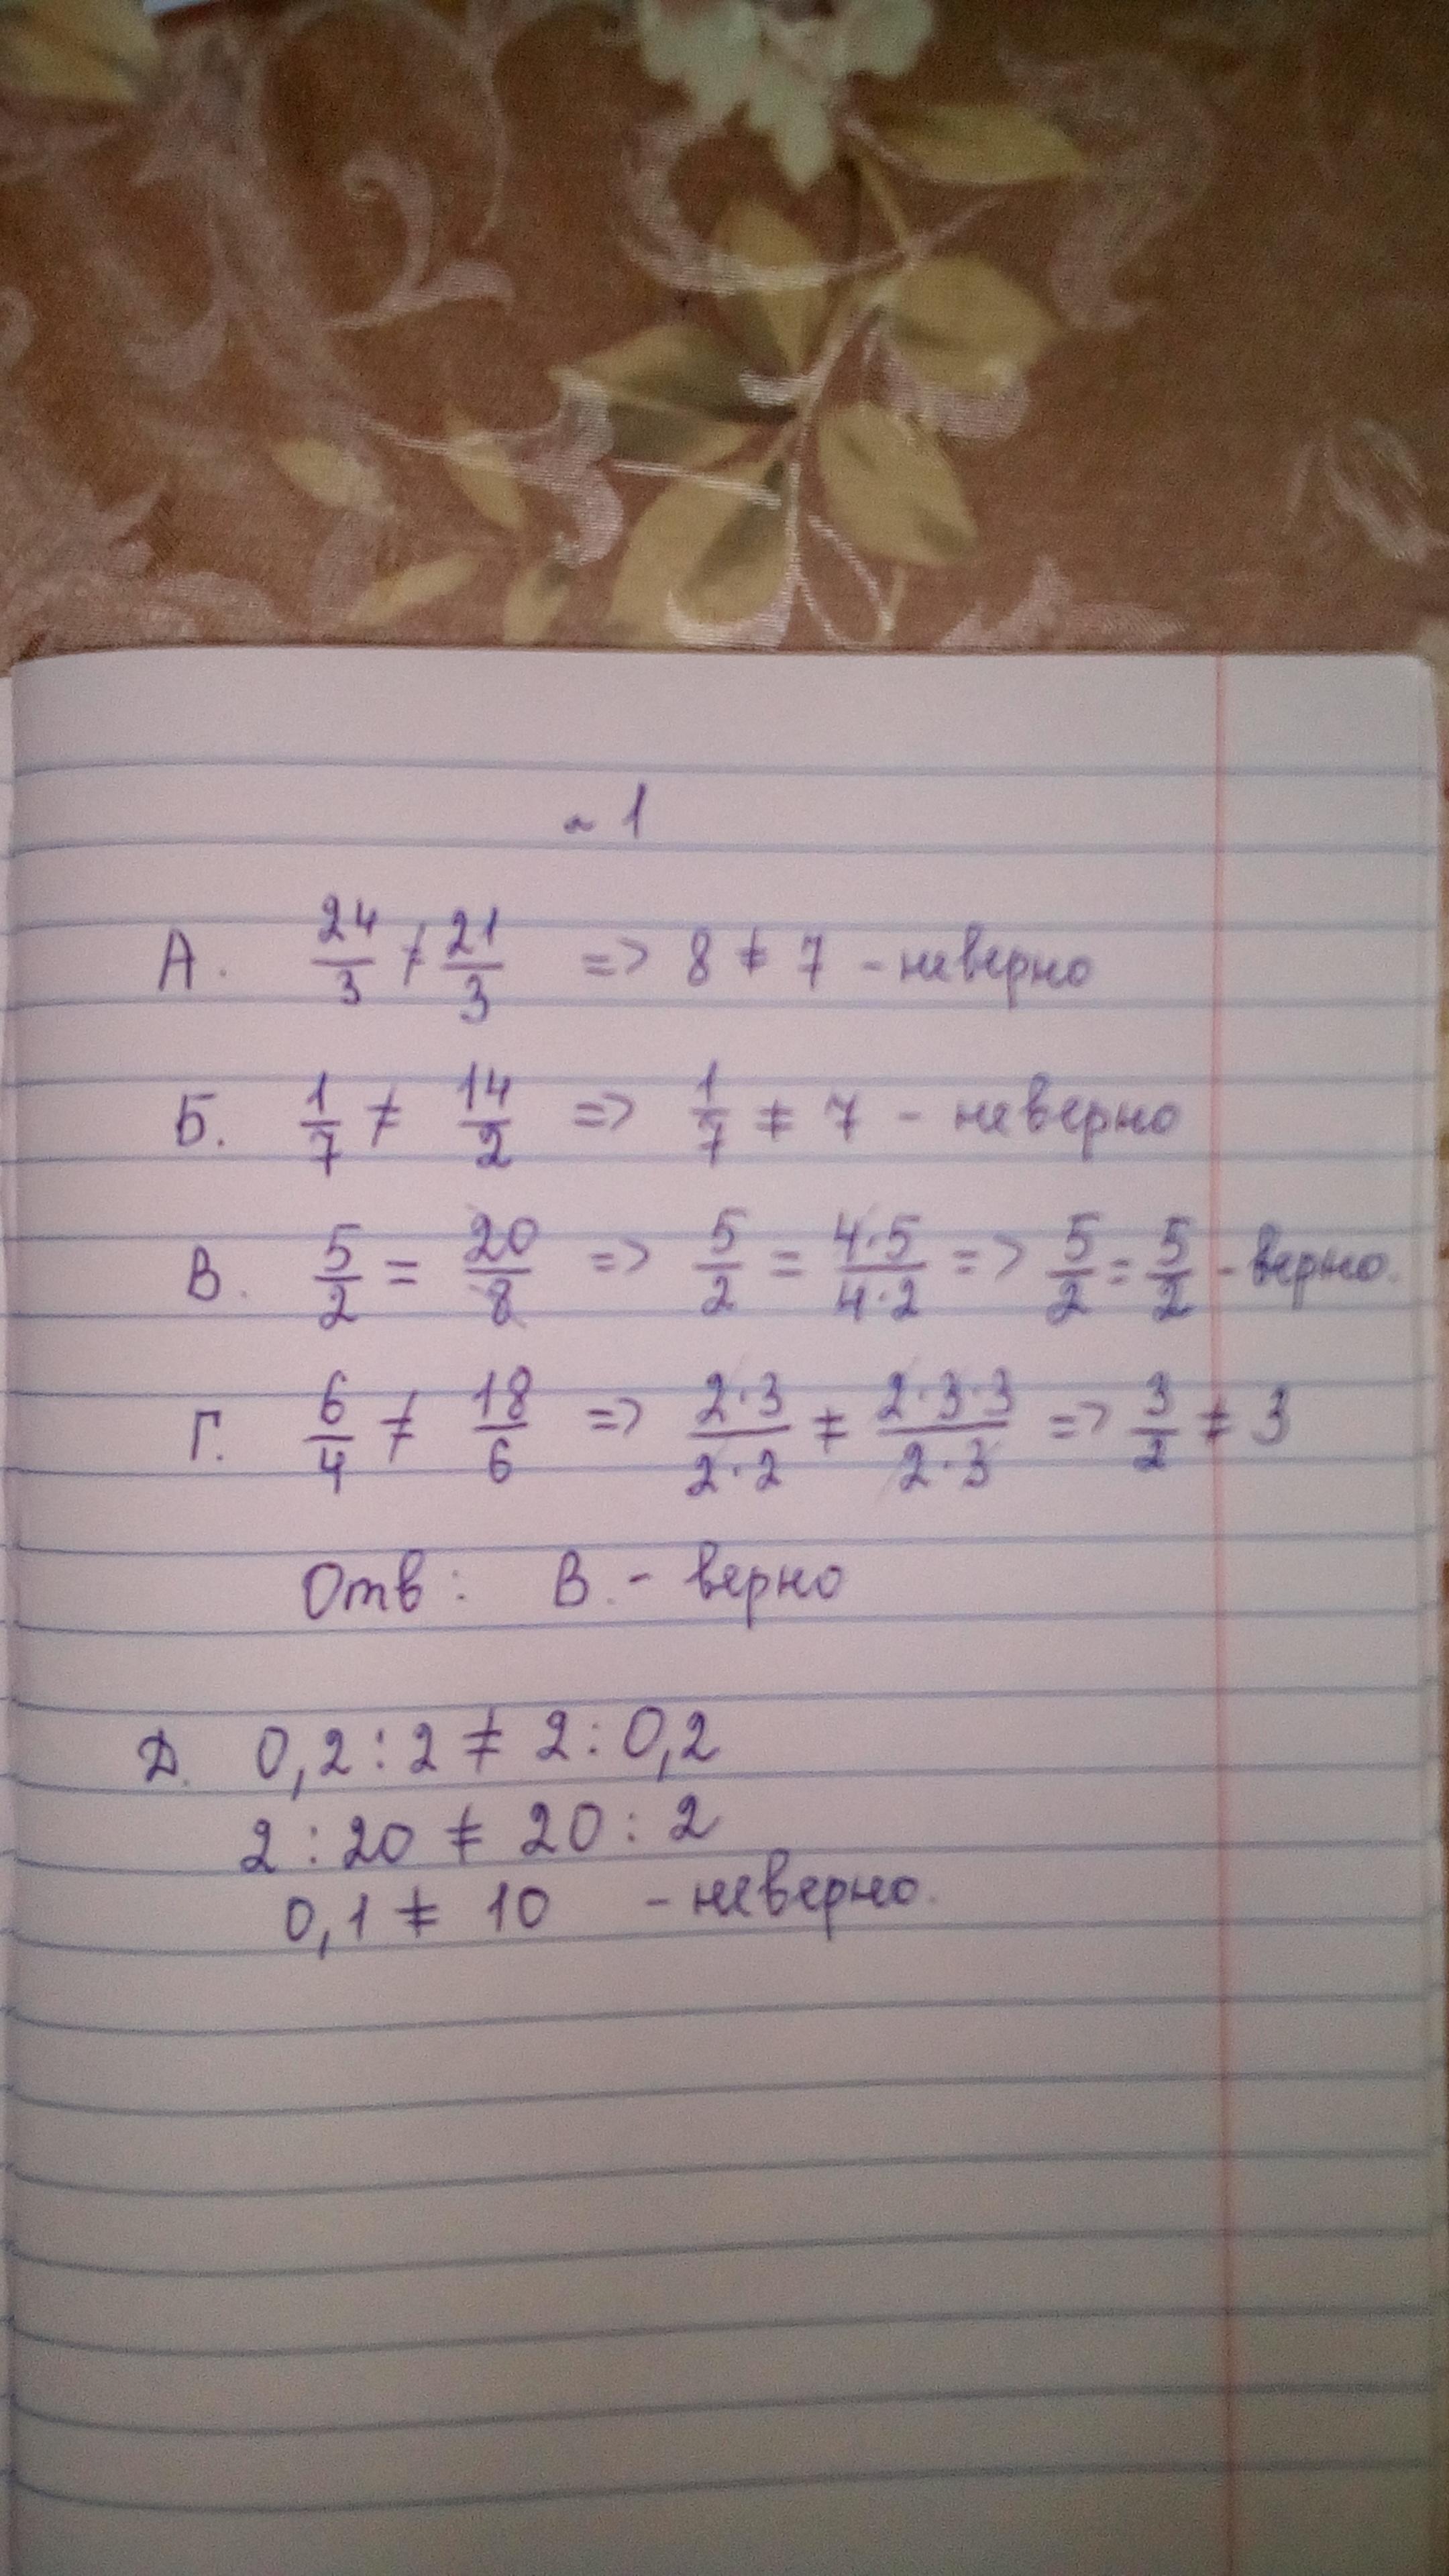 ~ 1
А. 24/3 ≠ 21/3 => 8 ≠ 7 - неверно
Б. 1/7 ≠ 14/2 => 1/7 ≠ 7 - неверно
В. 5/2 = 20/8 => 5/2 = 4·5/4·2 => 5/2 = 5/2 - верно.
Г. 6/4 ≠ 18/6 => 2·3/2·2 ≠ 2·3·3/2·3 => 3/2 ≠ 3
Отв: В. - верно
Д. 0,2 : 2 ≠ 2 : 0,2
2 : 20 ≠ 20 : 2
0,1 ≠ 10 - неверно.